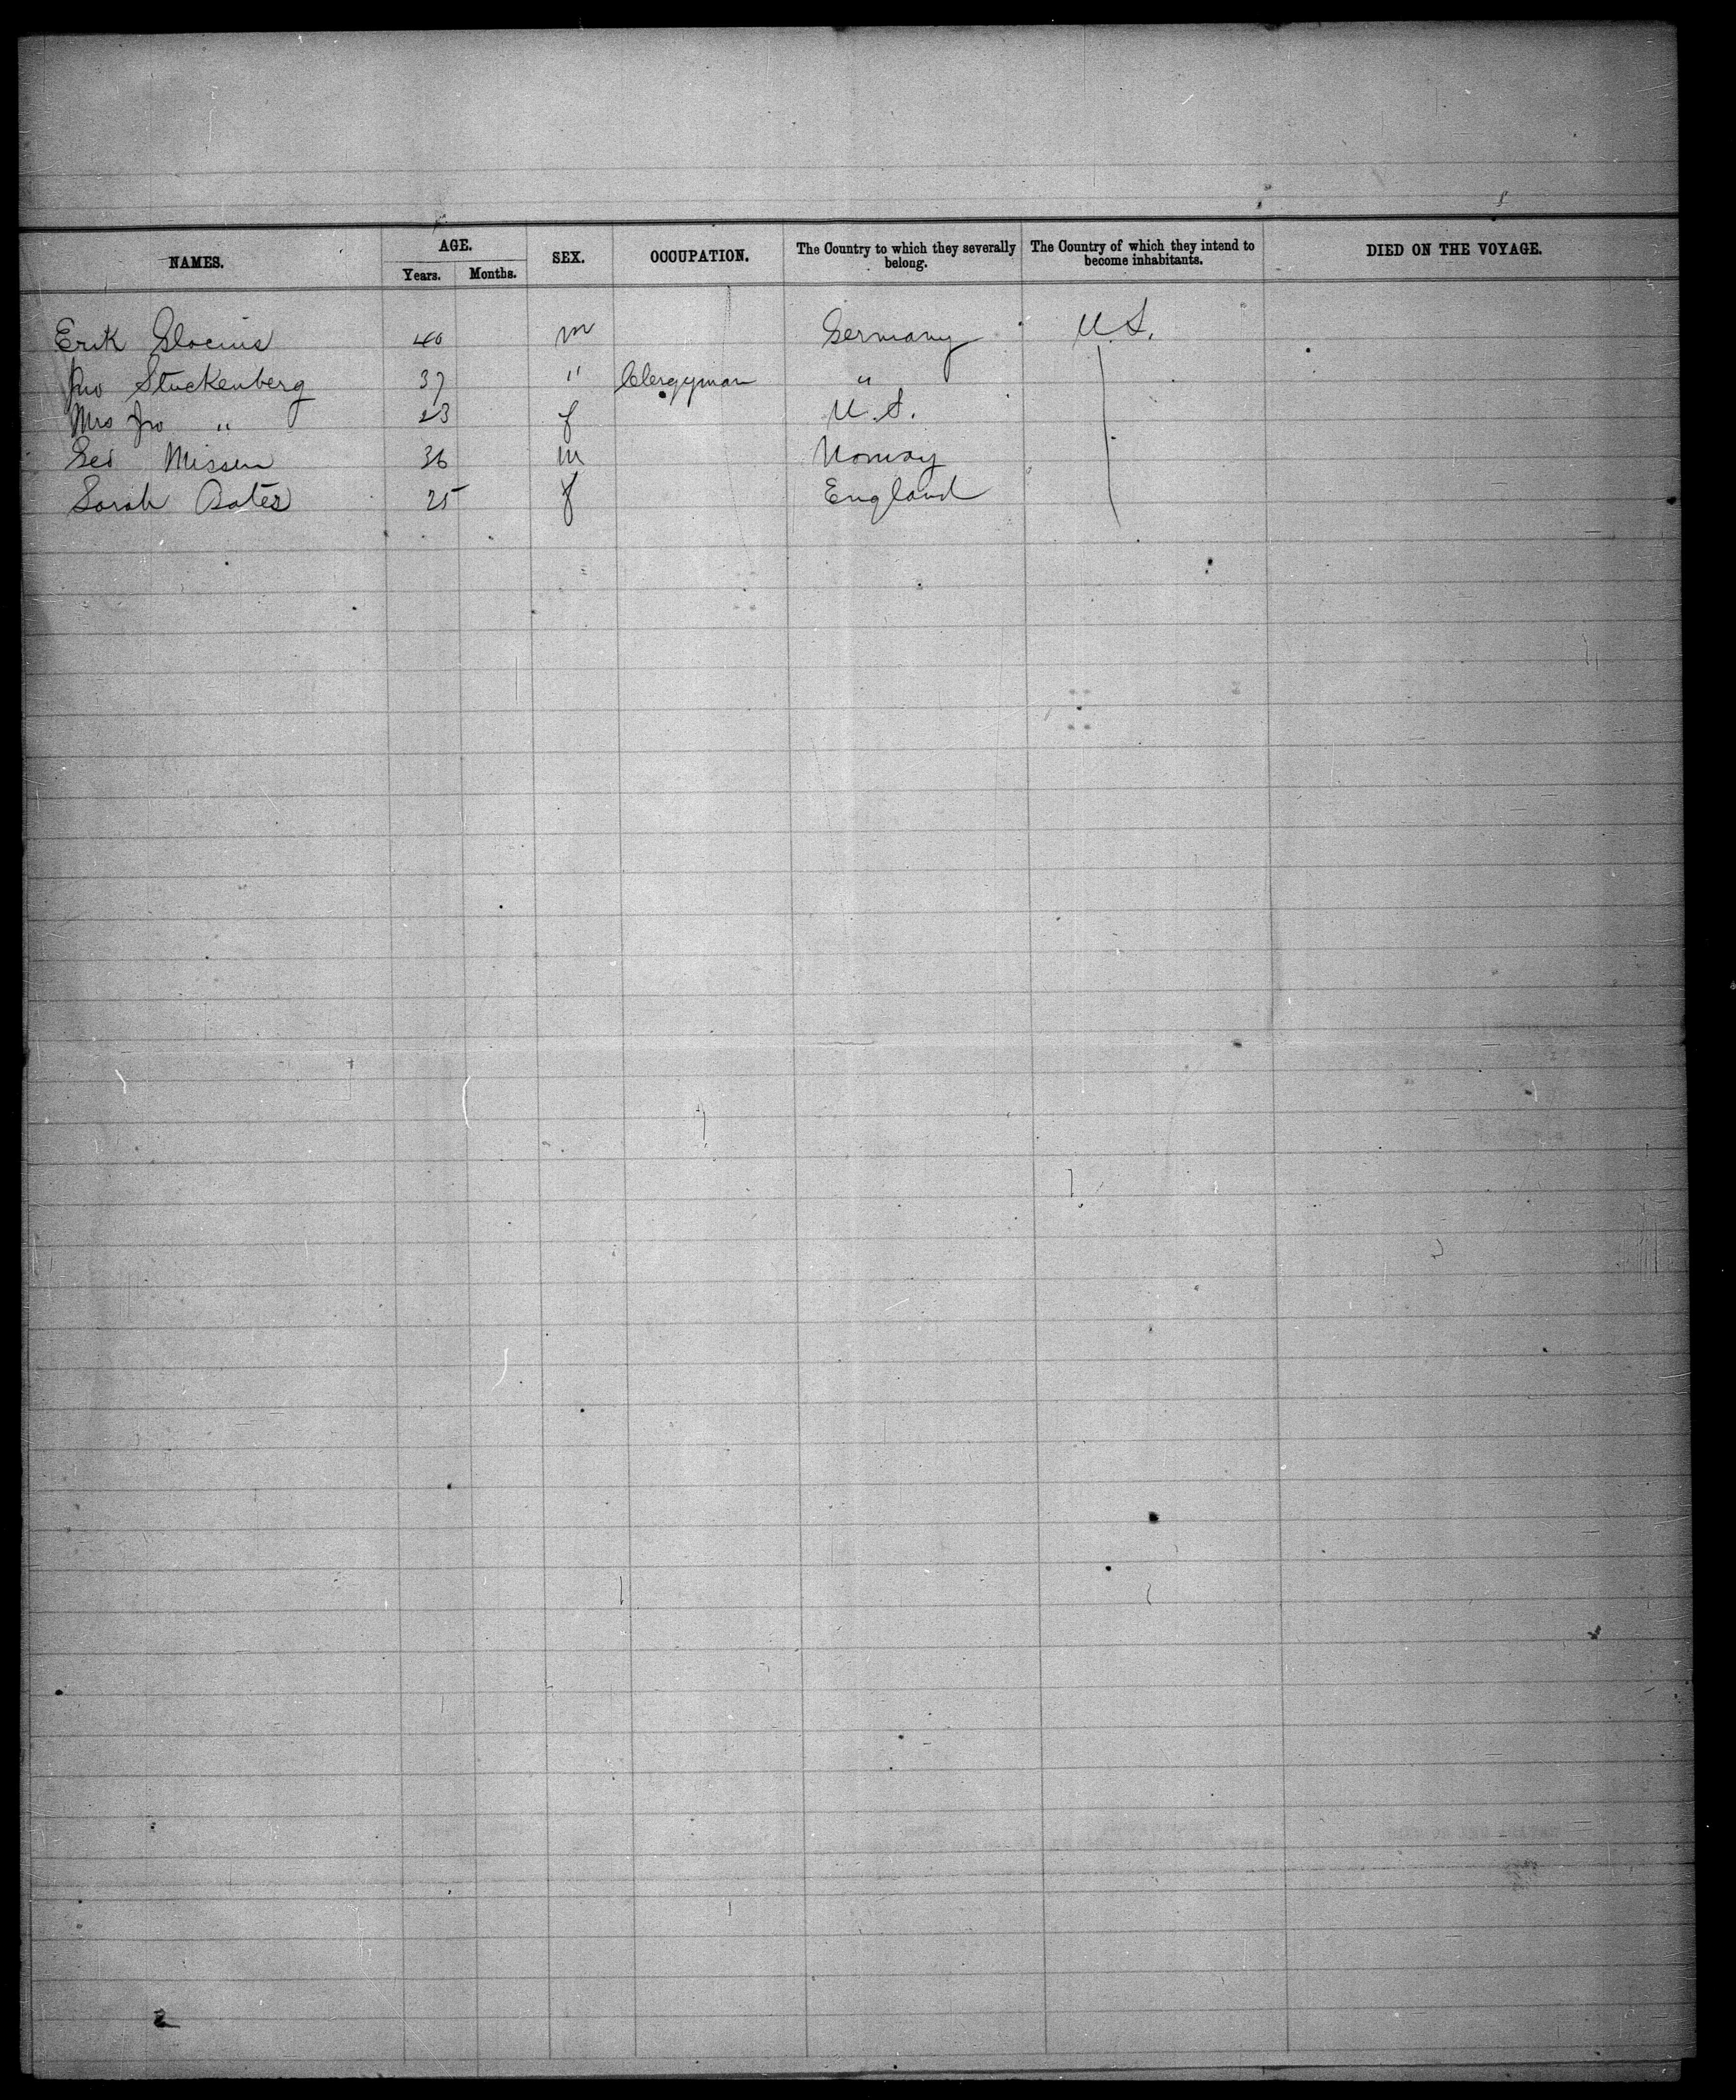 NAMES. AGE. SEX. OCCUPATION. The Country to which they severally belong. The Country of which they intend to become inhabitants. DIED ON THE VOYAGE.
Years. Months.
Erik 40 m Germany U.S.
Jno Stuckenberg 37 " Clergyman "
Mrs Jno " 23 f U.S.
Geo Nissen 36 m Norway
Sarah Bates 25 f England